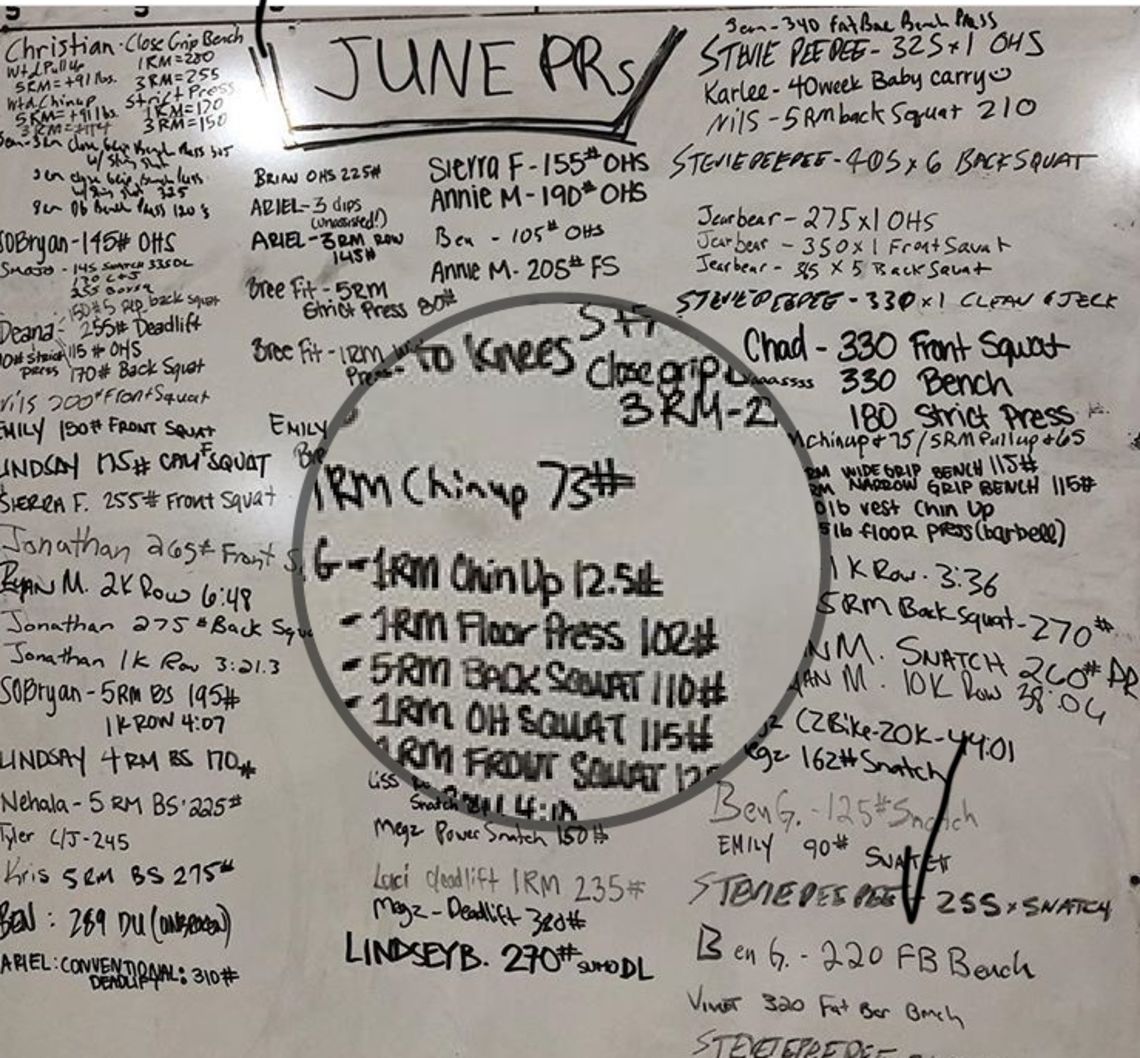 JUNE PRs
Christian - Close Grip Bench
Wtd. Pull Up 1RM=280
5RM=+91 lbs. 3RM=255
Wtd. Chinup Strict Press
5RM=+91 lbs. 1RM=170
3RM=150
SOBryan - 145# OHS
Deana - 255# Deadlift
115# OHS
170# Back Squat
Nils 200# Front Squat
EMILY 150# FRONT SQUAT
LINDSAY 175# SQUAT
SIERRA F. 255# Front Squat
Jonathan 265# Front
RYAN M. 2K Row 6:48
Jonathan 275# Back Squ
Jonathan 1K Row 3:21.3
SOBryan - 5RM BS 195#
1K ROW 4:07
LINDSAY 4RM BS 170#
Nehala - 5 RM BS 225#
Tyler C/J - 245
Kris 5RM BS 275#
BEN: 289 DU (UNBROKEN)
ARIEL: CONVENTIONAL
DEADLIFT: 310#
BRIAN OHS 225#
ARIEL - 3 dips
(unassisted!)
ARIEL - 3RM ROW
145#
Bree Fit - 5RM
Strict Press 80#
Bree Fit - 1RM
Press -
EMILY
Sierra F - 155# OHS
Annie M - 190# OHS
Ben - 105# OHS
Annie M - 205# FS
to Knees
Close grip
3RM-2
1RM Chinup 73#
G - 1RM Chin Up 12.5#
- 1RM Floor Press 102#
- 5RM BACK SQUAT 110#
- 1RM OH SQUAT 115#
1RM FRONT SQUAT 125
Liss
Snatch
Megz Power Snatch 150#
Luci deadlift 1RM 235#
Megz - Deadlift 320#
LINDSEY B. 270# SUMO DL
340 Fat Bar Bench Press
STEVIE PEEPEE - 325 x 1 OHS
Karlee - 40 week Baby carry
Nils - 5RM back Squat 210
STEVIE PEEPEE - 405 x 6 BACK SQUAT
Jearbear - 275 x 1 OHS
Jearbear - 350 x 1 Front Squat
Jearbear - 365 x 5 Back Squat
STEVIE PEEPEE - 330 x 1 CLEAN & JERK
Chad - 330 Front Squat
330 Bench
180 Strict Press
chinup + 75 / 5RM Pullup + 65
RM WIDE GRIP BENCH 115#
RM NARROW GRIP BENCH 115#
0lb vest Chin Up
5lb floor press (barbell)
1K Row. 3:36
5RM Back Squat - 270#
N M. SNATCH 260# PR
YAN M. 10K Row 38:04
C2Bike - 20K - 44:01
egz 162# Snatch
Ben G. - 125# Snatch
EMILY 90# SNATCH
STEVIE PEEPEE - 255 x SNATCH
Ben G. - 220 FB Bench
320 Fat Bar Bench
STEVIE PEEPEE -